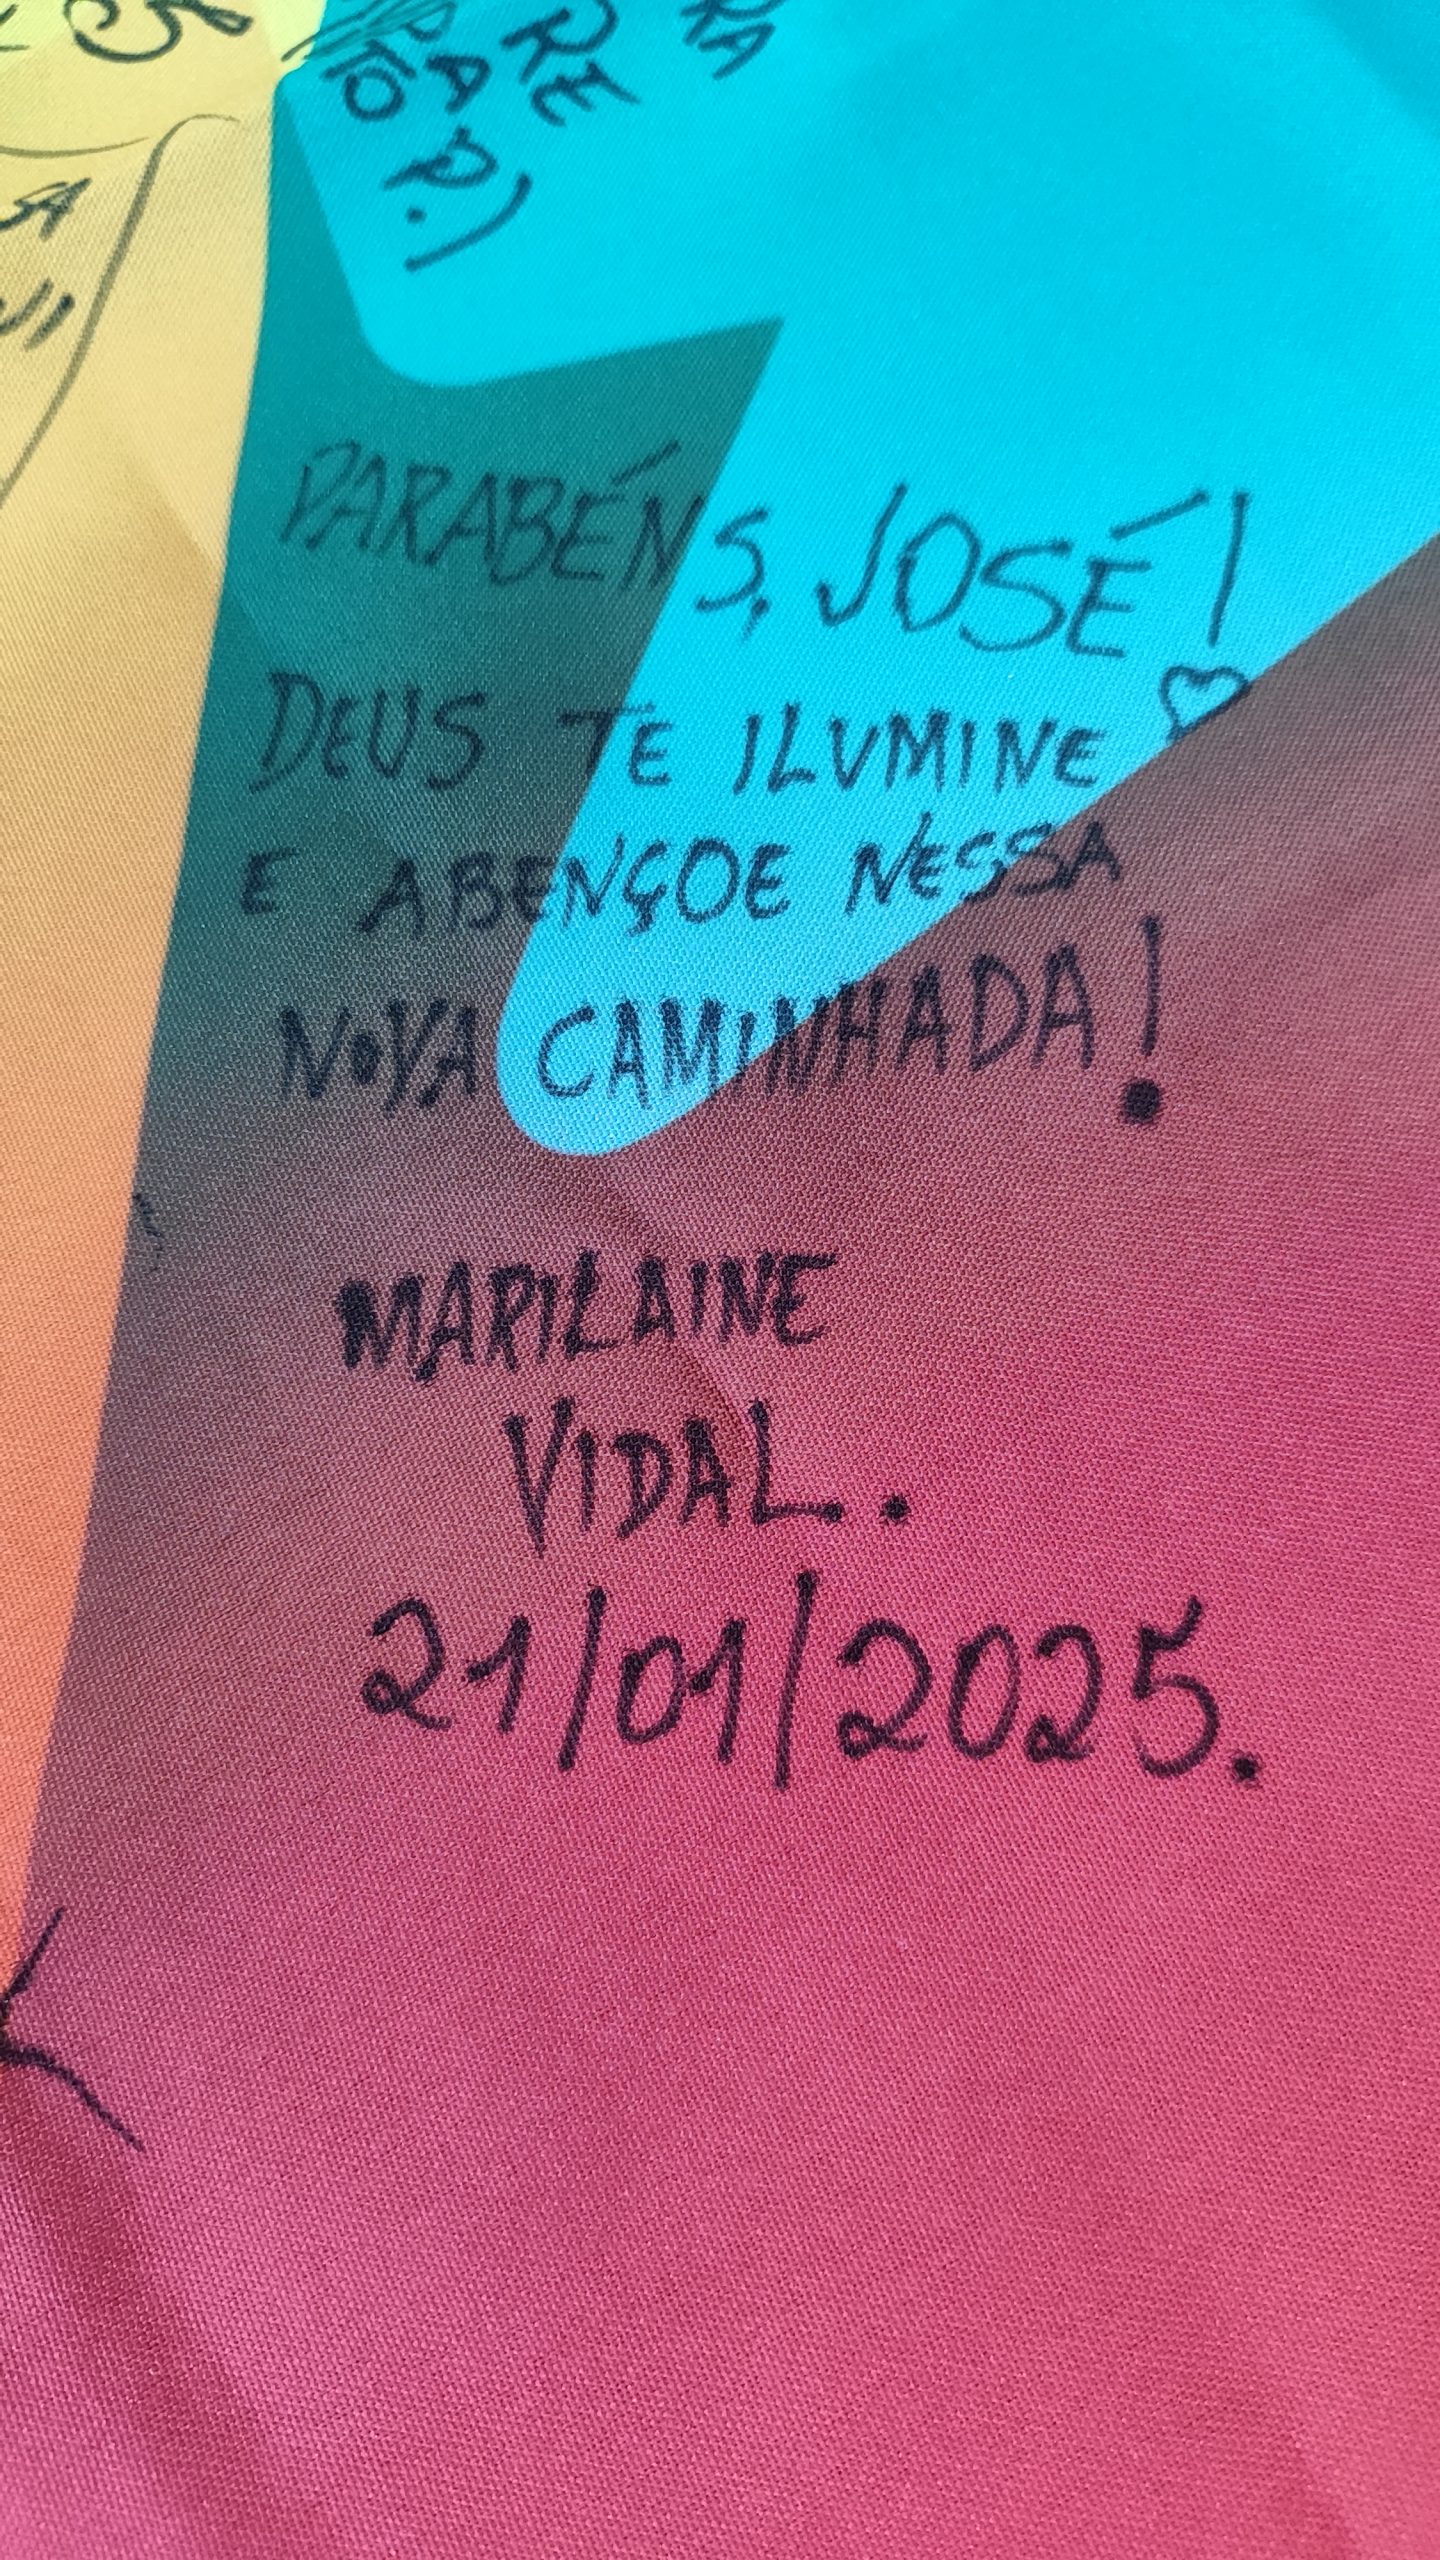 PARABÉNS, JOSÉ!
DEUS TE ILUMINE
E ABENÇOE NESSA
NOVA CAMINHADA!
MARILAINE
VIDAL.
21/01/2025.